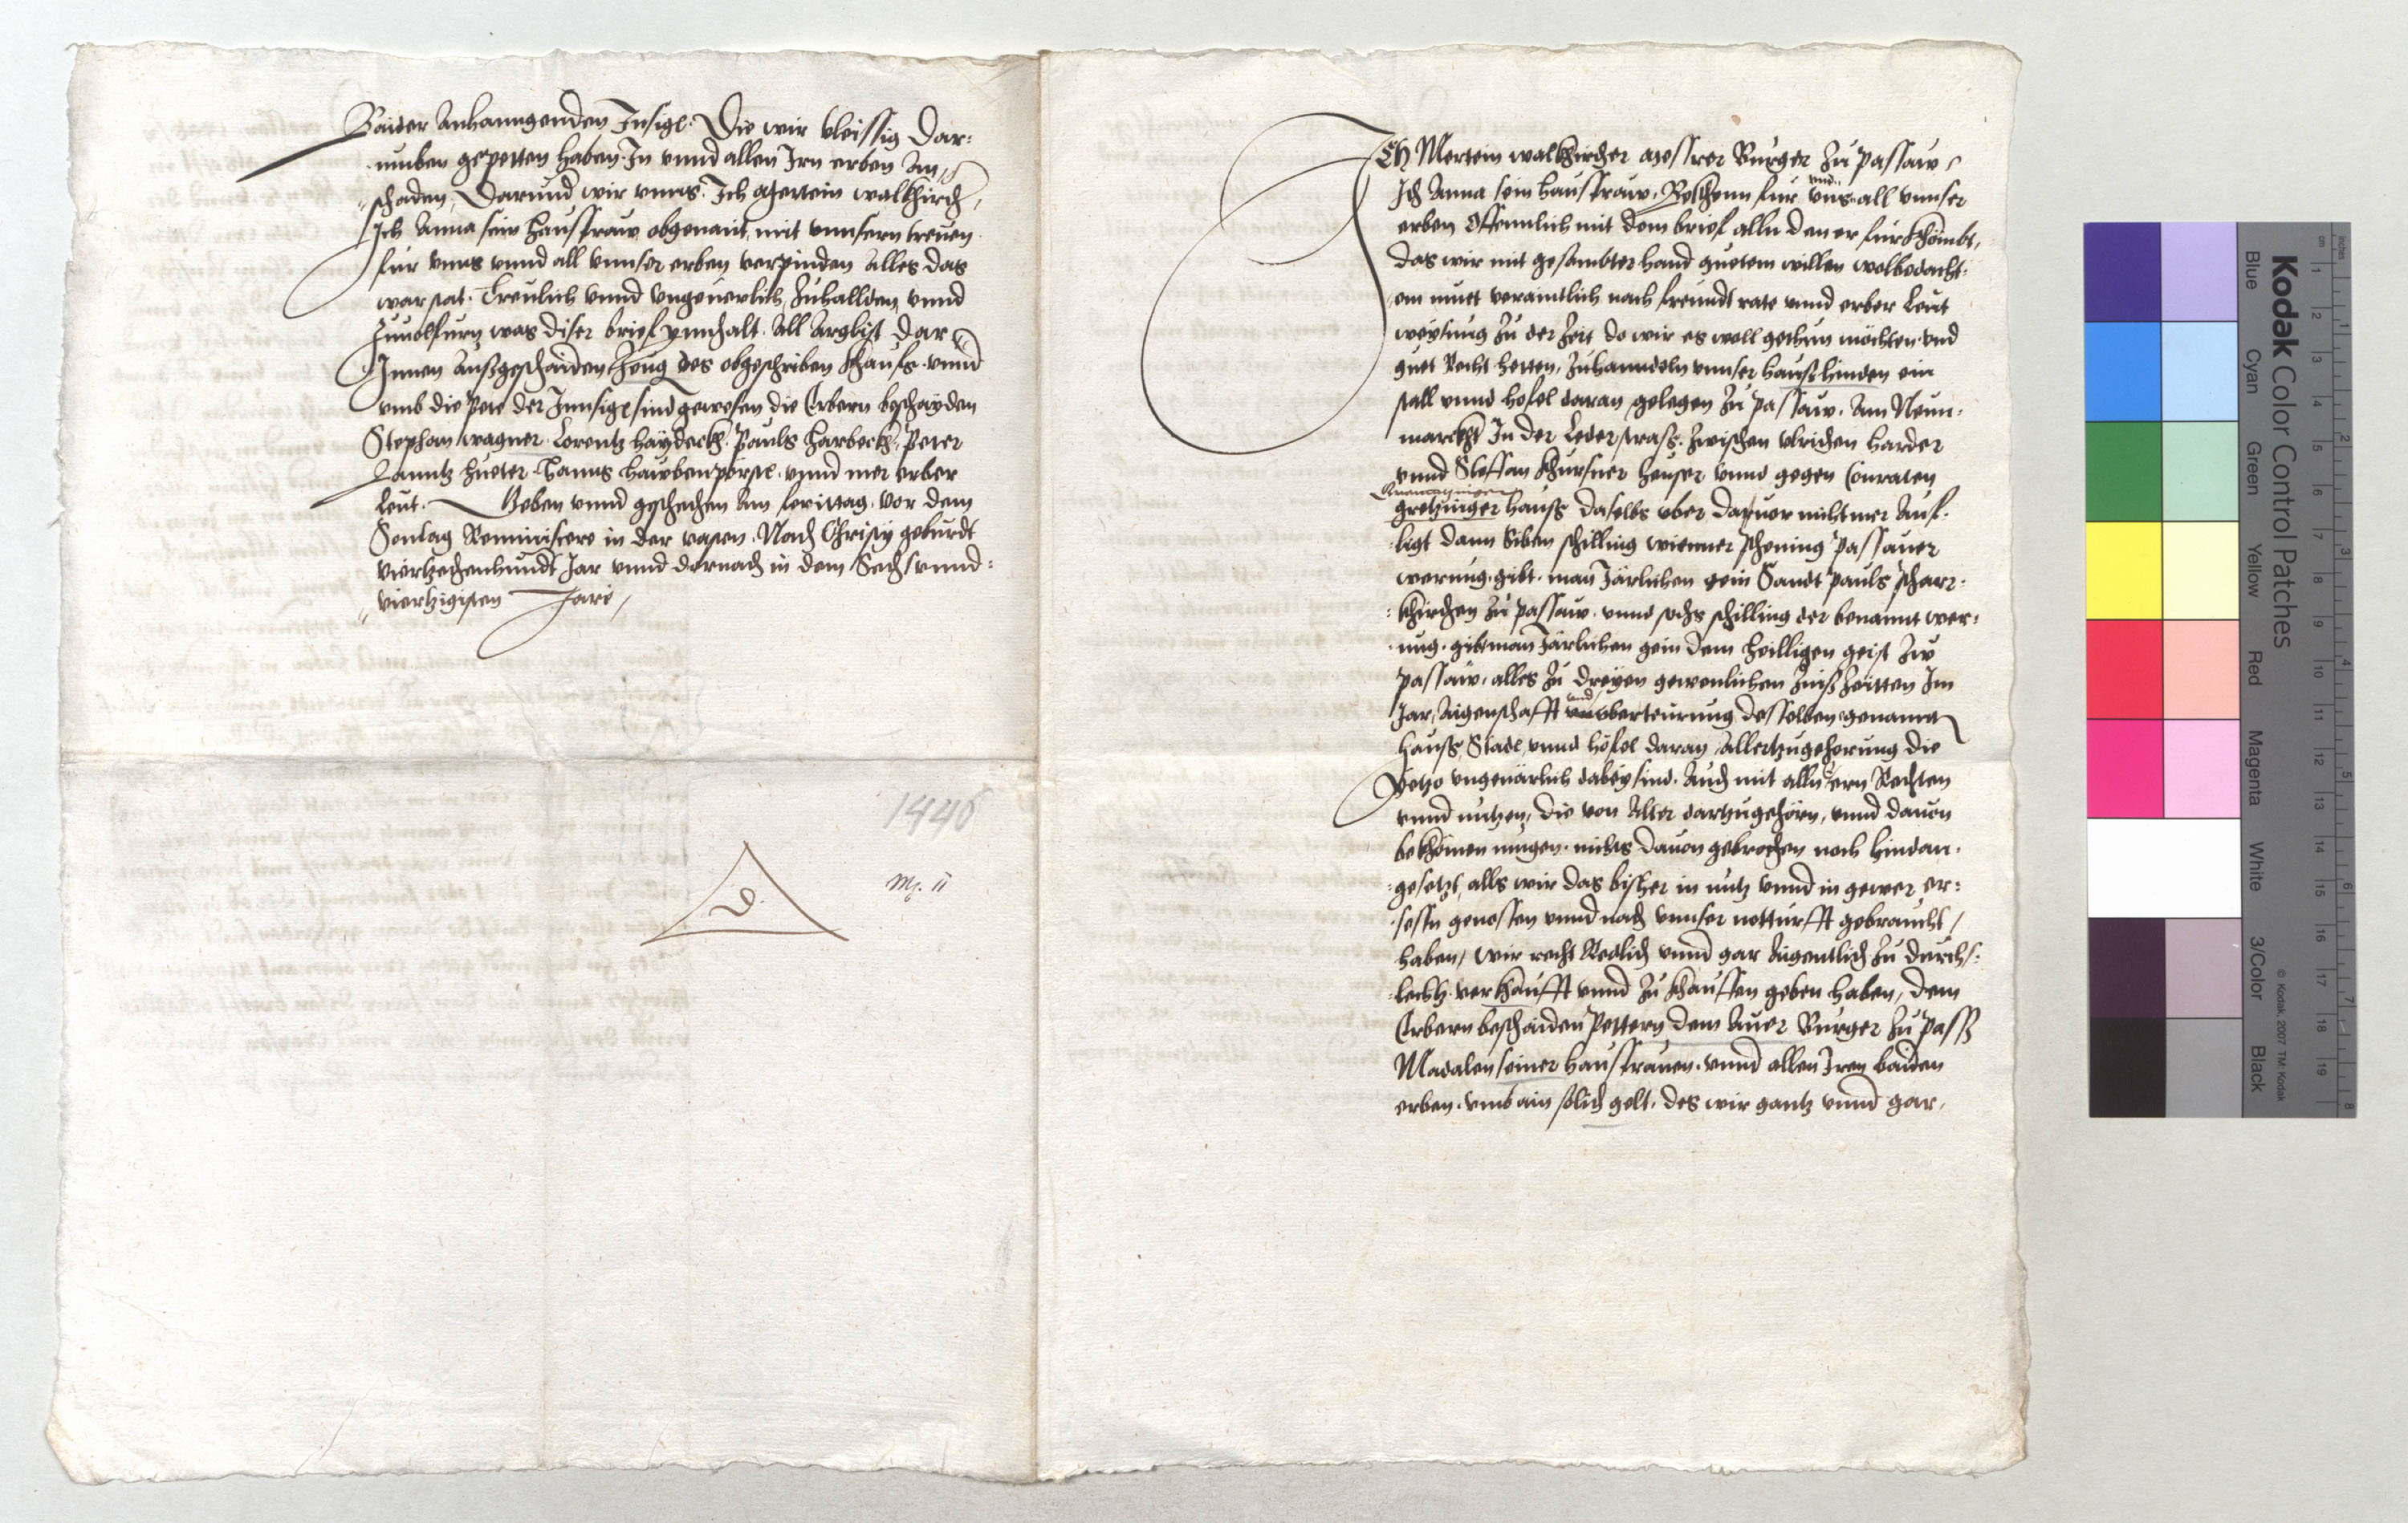 Baider Anhanngenden Insigl. Die wir vleissig Dar:
umben gepetten haben. In vnnd allen Irn erben An
schaden, Darund wir vnns. Ich Mertein walkhirch,
Ich Anna sein hausfraw obgenant, mit vnnsern treuen
für vnns vnnd all vnnser erben verpinden Alles das
war stat. Treulich vnnd vngeuerlich, Zuhallden, vnnd
Zuuolfurn, was diser brief ynnhalt. All Arglist dar
Innen Außgeschaiden Zeug des obgeschriben khaufs. vnnd
vmb die pete der Innsigl sind gewesen die Erbern beschayden
Stephan wagner. Lorentz haÿderkh. Pauls harbeckh. Peter
Lanntz hueter. Hanns hawbenpörstl. vnnd mer erber
leut. Geben vnnd geschechen Am freittag. vor dem
Sontag Reminiscere in der vasten. Nach Christy geburdt
vierzechenhundt Jar vnnd darnach in dem Sechsvnnd:
viertzigisten Jare,
1446
V.
M. II
ICH Mertein walkhircher Messrer Burger Zu passaw,
Ich Anna sein hausfraw. Bekhenn für vnns all vnnser
vnd
erben Offennlich mit dem brief alln den er fürkhombt,
das wir mit gesambter hand guetem willen wolbedacht:
em muet veraintlich nach freundt rate vnnd erber leut
weÿsung Zu der Zeit do wir es woll gethun mochten vnd
guet Recht hetten, Zuhanndeln vnnser hauß hinden ein
stall vnnd hofel daran gelegen Zu passaw. Am Neun:
marckht In der lederstrass. Zwischen vlrichen harder
vnnd Steffan khursner heuser vnnd gegen Conraten
gretzinger hauß daselbs vber daruor nicht mer Auf.
ligt dann Siben schilling wienner phening passauer
werung. gibt man Järlichen gein Sandt pauls phar:
khirchen Zu passaw. vnnd sechs schilling der benannt wer:
ung. gibt man Järlichen gein dem heilligen geist Zw
passaw. alles Zu dreyen gewonlichen Zinß Zeitten Im
vnd
Jar, Aigenschafft vberteurung desselben genanten
hauß, Stadl vnnd höfel daran, Allertzugehorung die
Yetzo vngeuärlich dabeÿ sind. Auch mit alln ern Rechten
vnnd nutzen, die von Alter dartzugehörn, vnnd dauon
bekhömen mügen. nichts dauon gebrochen noch hindan.
gesetzt, alls wir das bisher in nutz vnnd in gewer er:
sessn genossen vnnd nach vnnser notturfft gebraucht,
haben, wir recht Redlich vnnd gar Aigentlich Zu durchs:
lechtz verkhaufft vnnd Zu khauffen geben haben, dem
Erbern beschaiden Pettern dem Auer Burger Zu Pass
Madalen seiner hausfrauen. vnnd allen Iren baiden
erben. vmb ain solich gelt. des wir gantz vnnd gar,
Kodak Color Control Patches
© Kodak, 2007 TM: Kodak
Blue Cyan Green Yellow Red Magenta White 3/Color Black
cm 1 2 3 4 5 6 7 8 9 10 11 12 13 14 15 16 17 18 19
inches 1 2 3 4 5 6 7 8